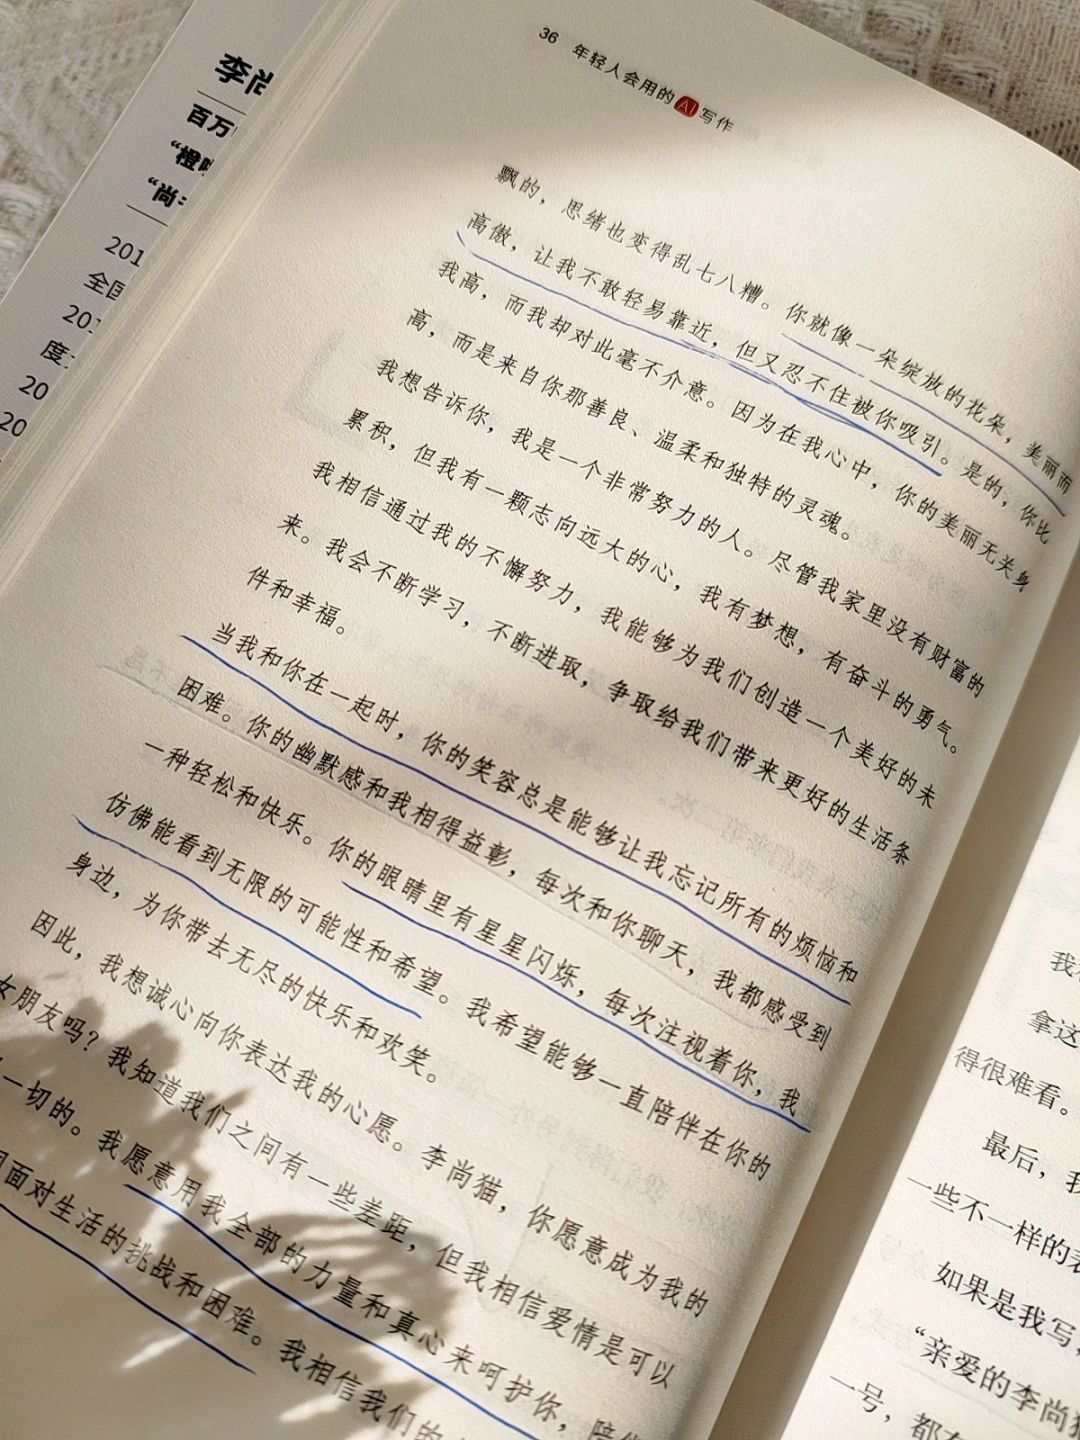 李尚
百万
“橙
“尚
201
全国
201
度
20
20
36 年轻人会用的AI写作
飘的，思绪也变得乱七八糟。你就像一朵绽放的花朵，美丽而
高傲，让我不敢轻易靠近，但又忍不住被你吸引。是的，你比
我高，而我却对此毫不介意。因为在我心中，你的美丽无关身
高，而是来自你那善良、温柔和独特的灵魂。
我想告诉你，我是一个非常努力的人。尽管我家里没有财富的
累积，但我有一颗志向远大的心，我有梦想，有奋斗的勇气。
我相信通过我的不懈努力，我能够为我们创造一个美好的未
来。我会不断学习，不断进取，争取给我们带来更好的生活条
件和幸福。
当我和你在一起时，你的笑容总是能够让我忘记所有的烦恼和
困难。你的幽默感和我相得益彰，每次和你聊天，我都感受到
一种轻松和快乐。你的眼睛里有星星闪烁，每次注视着你，我
仿佛能看到无限的可能性和希望。我希望能够一直陪伴在你的
身边，为你带去无尽的快乐和欢笑。
因此，我想诚心向你表达我的心愿。李尚猫，你愿意成为我的
女朋友吗？我知道我们之间有一些差距，但我相信爱情是可以
一切的。我愿意用我全部的力量和真心来呵护你，陪
面对生活的挑战和困难。我相信我们的
我
拿这
得很难看。
最后，我
一些不一样的表
如果是我写，
“亲爱的李尚猫
一号，都